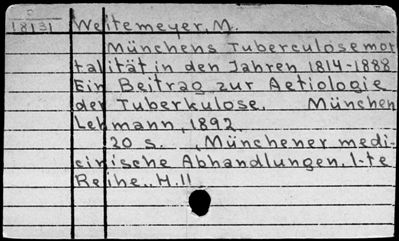 18131 Weitemeyer, M.
Münchens Tuberculosemor
talität in den Jahren 1814-1888
Ein Beitrag zur Aetiologie
der Tuberkulose. München
Lehmann, 1892.
20 s. , Münchener medi-
cinische Abhandlungen. 1-te
Reihe., H. 11